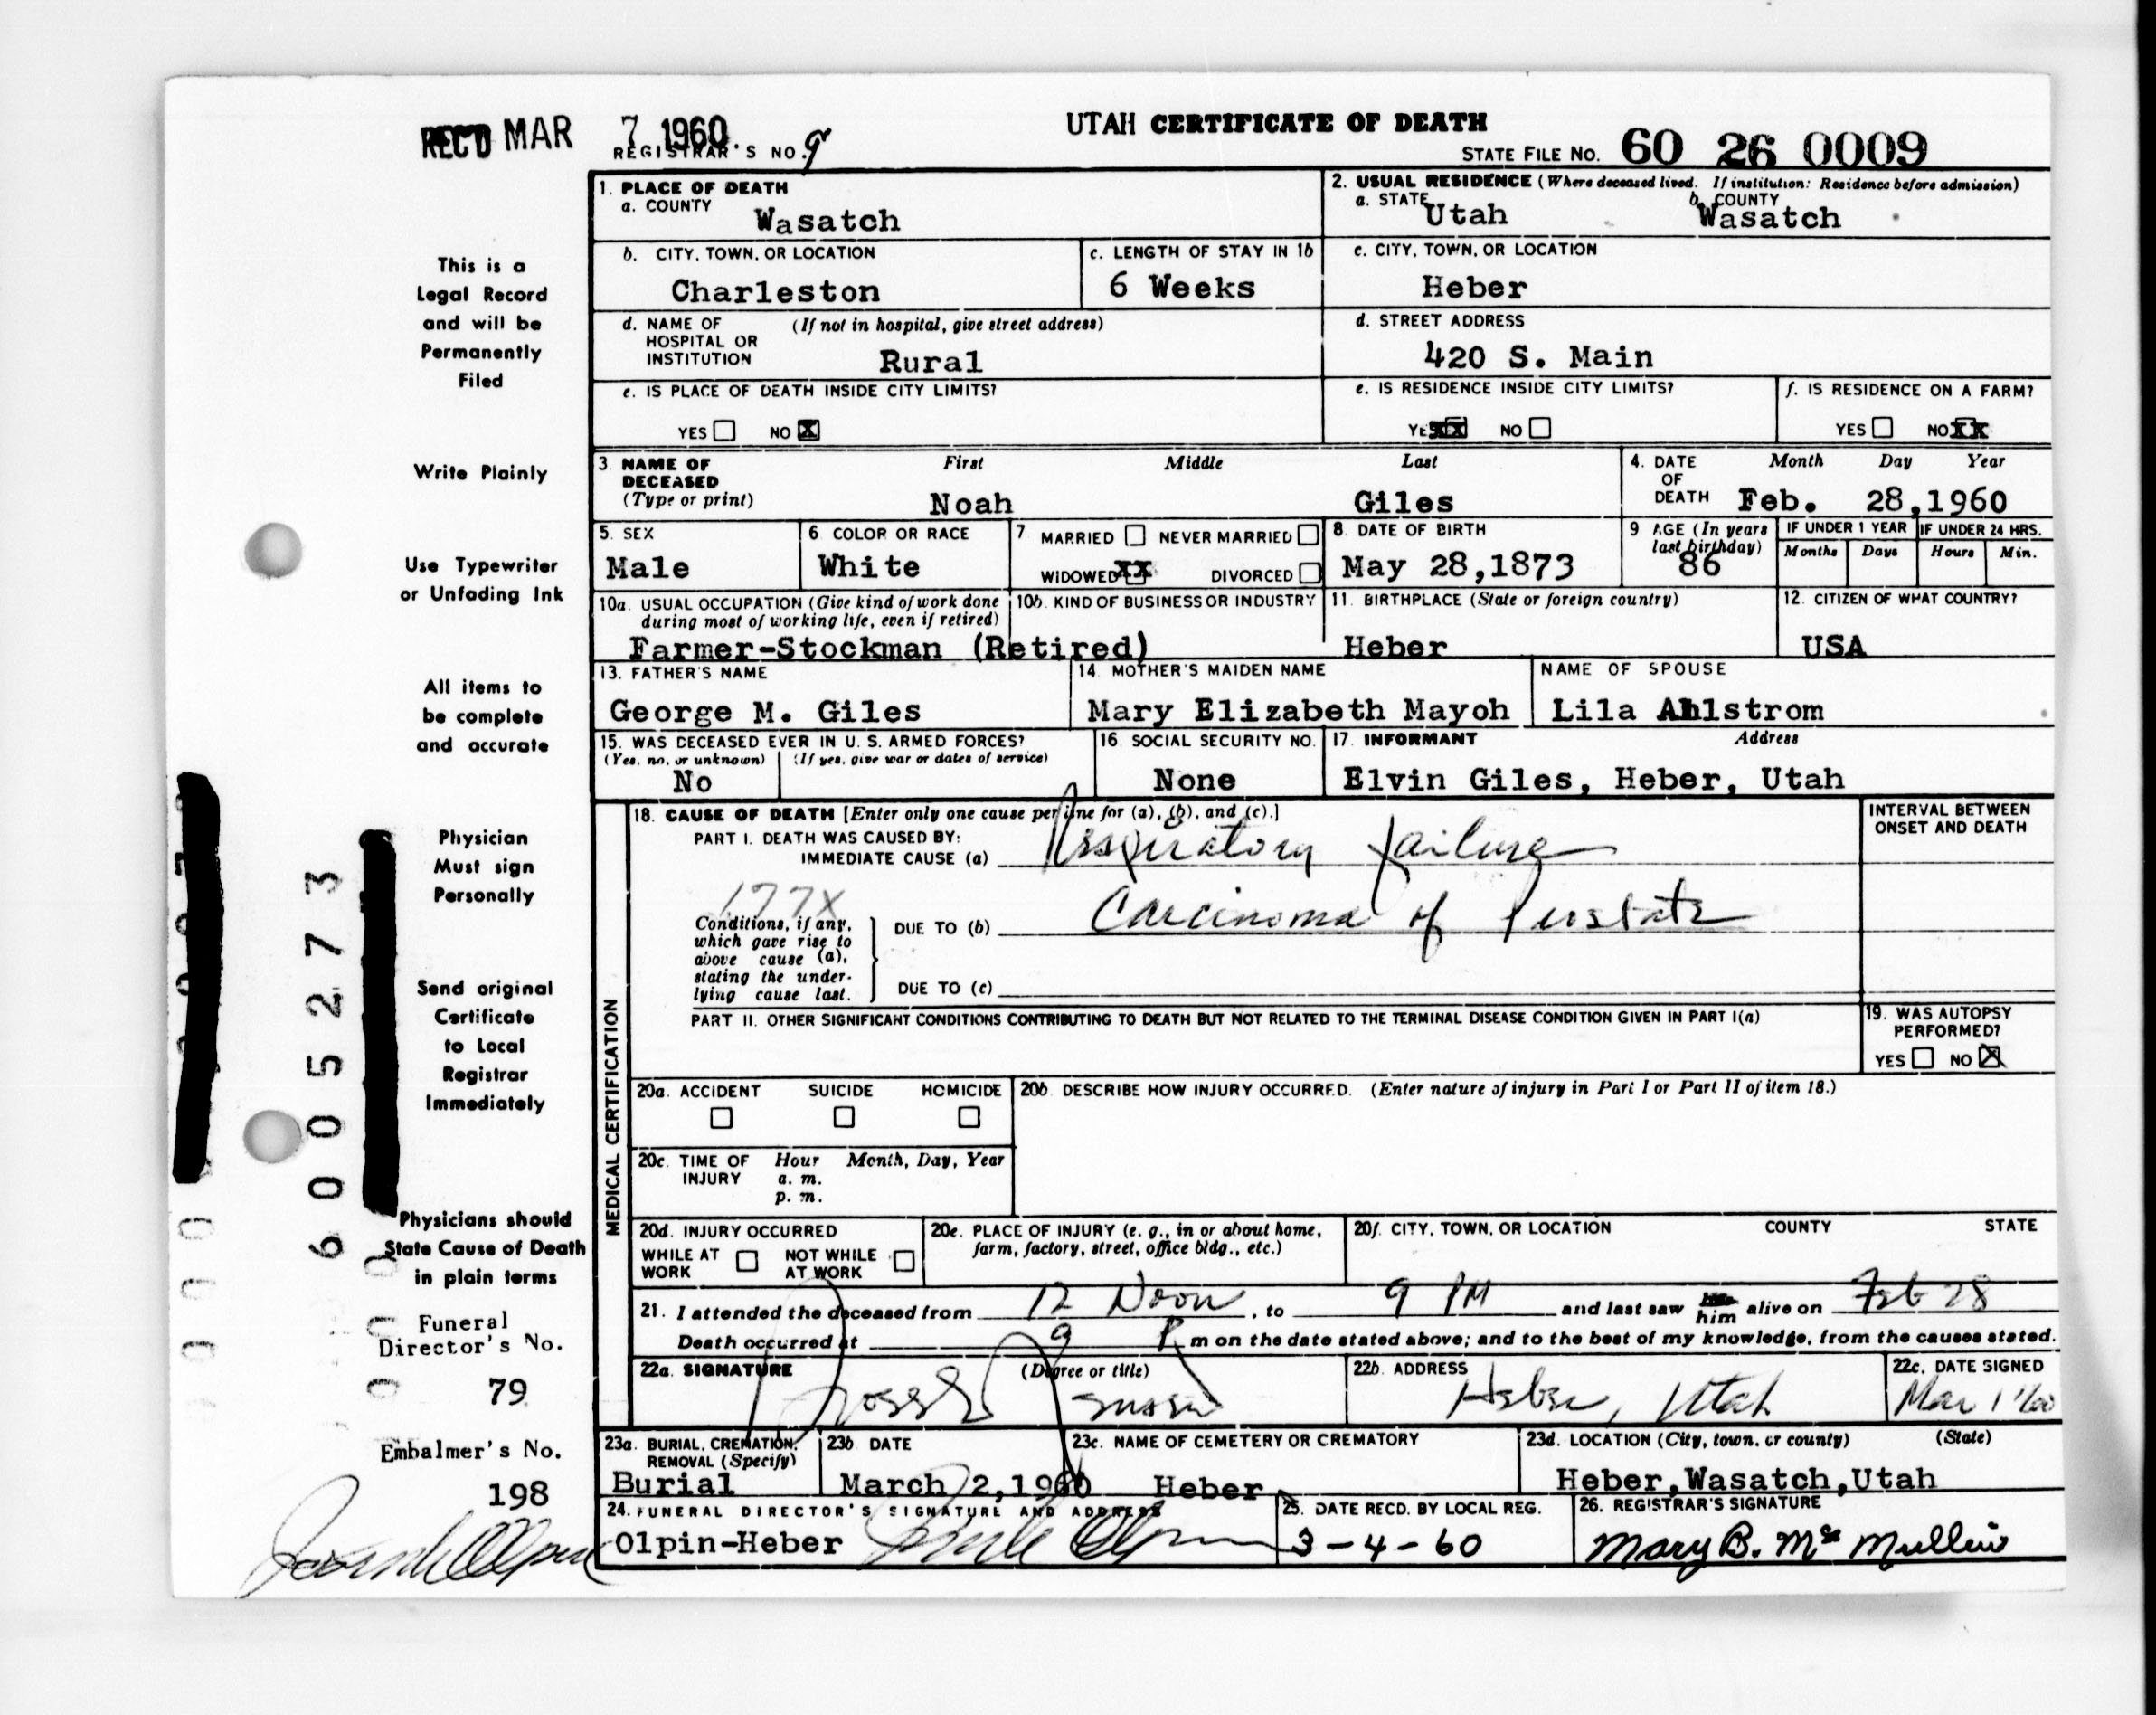 REC'D MAR 7 1960
UTAH CERTIFICATE OF DEATH
REGISTRAR'S NO. 9
STATE FILE NO. 60 26 0009
This is a
Legal Record
and will be
Permanently
Filed
Write Plainly
Use Typewriter
or Unfading Ink
All items to
be complete
and accurate
Physician
Must sign
Personally
Send original
Certificate
to Local
Registrar
Immediately
Physicians should
State Cause of Death
in plain terms
Funeral
Director's No.
79
Embalmer's No.
198
6005273
1. PLACE OF DEATH
a. COUNTY
Wasatch
2. USUAL RESIDENCE (Where deceased lived. If institution: Residence before admission)
a. STATE Utah
b. COUNTY Wasatch
b. CITY, TOWN, OR LOCATION
Charleston
c. LENGTH OF STAY IN 1b
6 Weeks
c. CITY, TOWN, OR LOCATION
Heber
d. NAME OF HOSPITAL OR INSTITUTION (If not in hospital, give street address)
Rural
d. STREET ADDRESS
420 S. Main
e. IS PLACE OF DEATH INSIDE CITY LIMITS?
YES NO X
e. IS RESIDENCE INSIDE CITY LIMITS?
YES XX NO
f. IS RESIDENCE ON A FARM?
YES NO XX
3. NAME OF DECEASED (Type or print)
First Middle Last
Noah Giles
4. DATE OF DEATH Month Day Year
Feb. 28,1960
5. SEX
Male
6. COLOR OR RACE
White
7 MARRIED NEVER MARRIED
WIDOWED XX DIVORCED
8. DATE OF BIRTH
May 28,1873
9 AGE (In years last birthday)
86
IF UNDER 1 YEAR IF UNDER 24 HRS.
Months Days Hours Min.
10a. USUAL OCCUPATION (Give kind of work done during most of working life, even if retired)
Farmer-Stockman (Retired)
10b. KIND OF BUSINESS OR INDUSTRY
11. BIRTHPLACE (State or foreign country)
Heber
12. CITIZEN OF WHAT COUNTRY?
USA
13. FATHER'S NAME
George M. Giles
14. MOTHER'S MAIDEN NAME
Mary Elizabeth Mayoh
NAME OF SPOUSE
Lila Ahlstrom
15. WAS DECEASED EVER IN U. S. ARMED FORCES?
(Yes, no, or unknown) (If yes, give war or dates of service)
No
16. SOCIAL SECURITY NO.
None
17. INFORMANT Address
Elvin Giles, Heber, Utah
MEDICAL CERTIFICATION
18. CAUSE OF DEATH [Enter only one cause per line for (a), (b), and (c).]
INTERVAL BETWEEN ONSET AND DEATH
PART I. DEATH WAS CAUSED BY:
IMMEDIATE CAUSE (a) Respiratory failure
177X
Conditions, if any, which gave rise to above cause (a), stating the underlying cause last.
DUE TO (b) Carcinoma of Prostate
DUE TO (c)
PART II. OTHER SIGNIFICANT CONDITIONS CONTRIBUTING TO DEATH BUT NOT RELATED TO THE TERMINAL DISEASE CONDITION GIVEN IN PART I(a)
19. WAS AUTOPSY PERFORMED?
YES NO X
20a. ACCIDENT SUICIDE HOMICIDE
20b. DESCRIBE HOW INJURY OCCURRED. (Enter nature of injury in Part I or Part II of item 18.)
20c. TIME OF INJURY Hour Month, Day, Year
a. m.
p. m.
20d. INJURY OCCURRED
WHILE AT WORK NOT WHILE AT WORK
20e. PLACE OF INJURY (e. g., in or about home, farm, factory, street, office bldg., etc.)
20f. CITY, TOWN, OR LOCATION COUNTY STATE
21. I attended the deceased from 12 Noon, to 9 PM and last saw him alive on Feb 28
Death occurred at 9 P m on the date stated above; and to the best of my knowledge, from the causes stated.
22a. SIGNATURE (Degree or title)
22b. ADDRESS
Heber, Utah
22c. DATE SIGNED
Mar 1 '60
23a. BURIAL, CREMATION, REMOVAL (Specify)
Burial
23b DATE
March 2,1960
23c. NAME OF CEMETERY OR CREMATORY
Heber
23d. LOCATION (City, town, or county) (State)
Heber,Wasatch,Utah
24. FUNERAL DIRECTOR'S SIGNATURE AND ADDRESS
Olpin-Heber
25. DATE RECD. BY LOCAL REG.
3-4-60
26. REGISTRAR'S SIGNATURE
Mary B. Mc Mullin